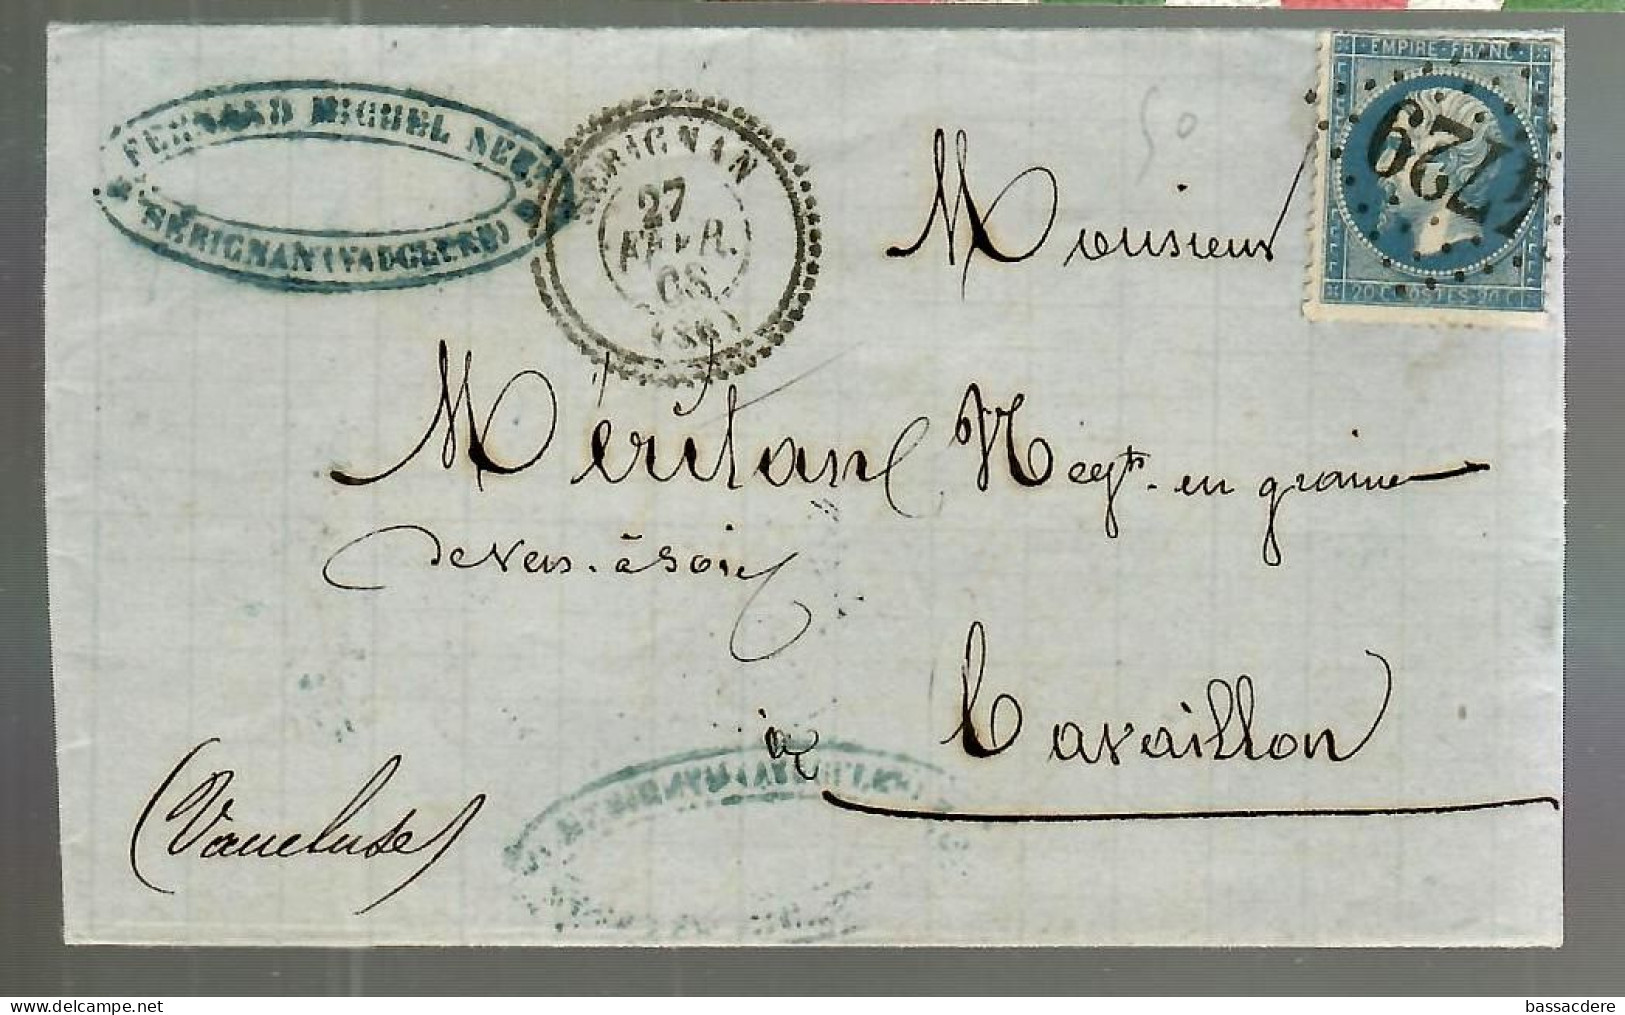 FERNAND MICHEL
SÉRIGNAN (VAUCLUSE)
SÉRIGNAN
27
FÉVR.
68
(86)
EMPIRE FRANC
4729
20 C POSTES 20 C
50
Monsieur
Méritan Negt. en graine
de vers à soie
à Cavaillon
(Vaucluse)
SÉRIGNAN (VAUCLUSE)
bassacdere